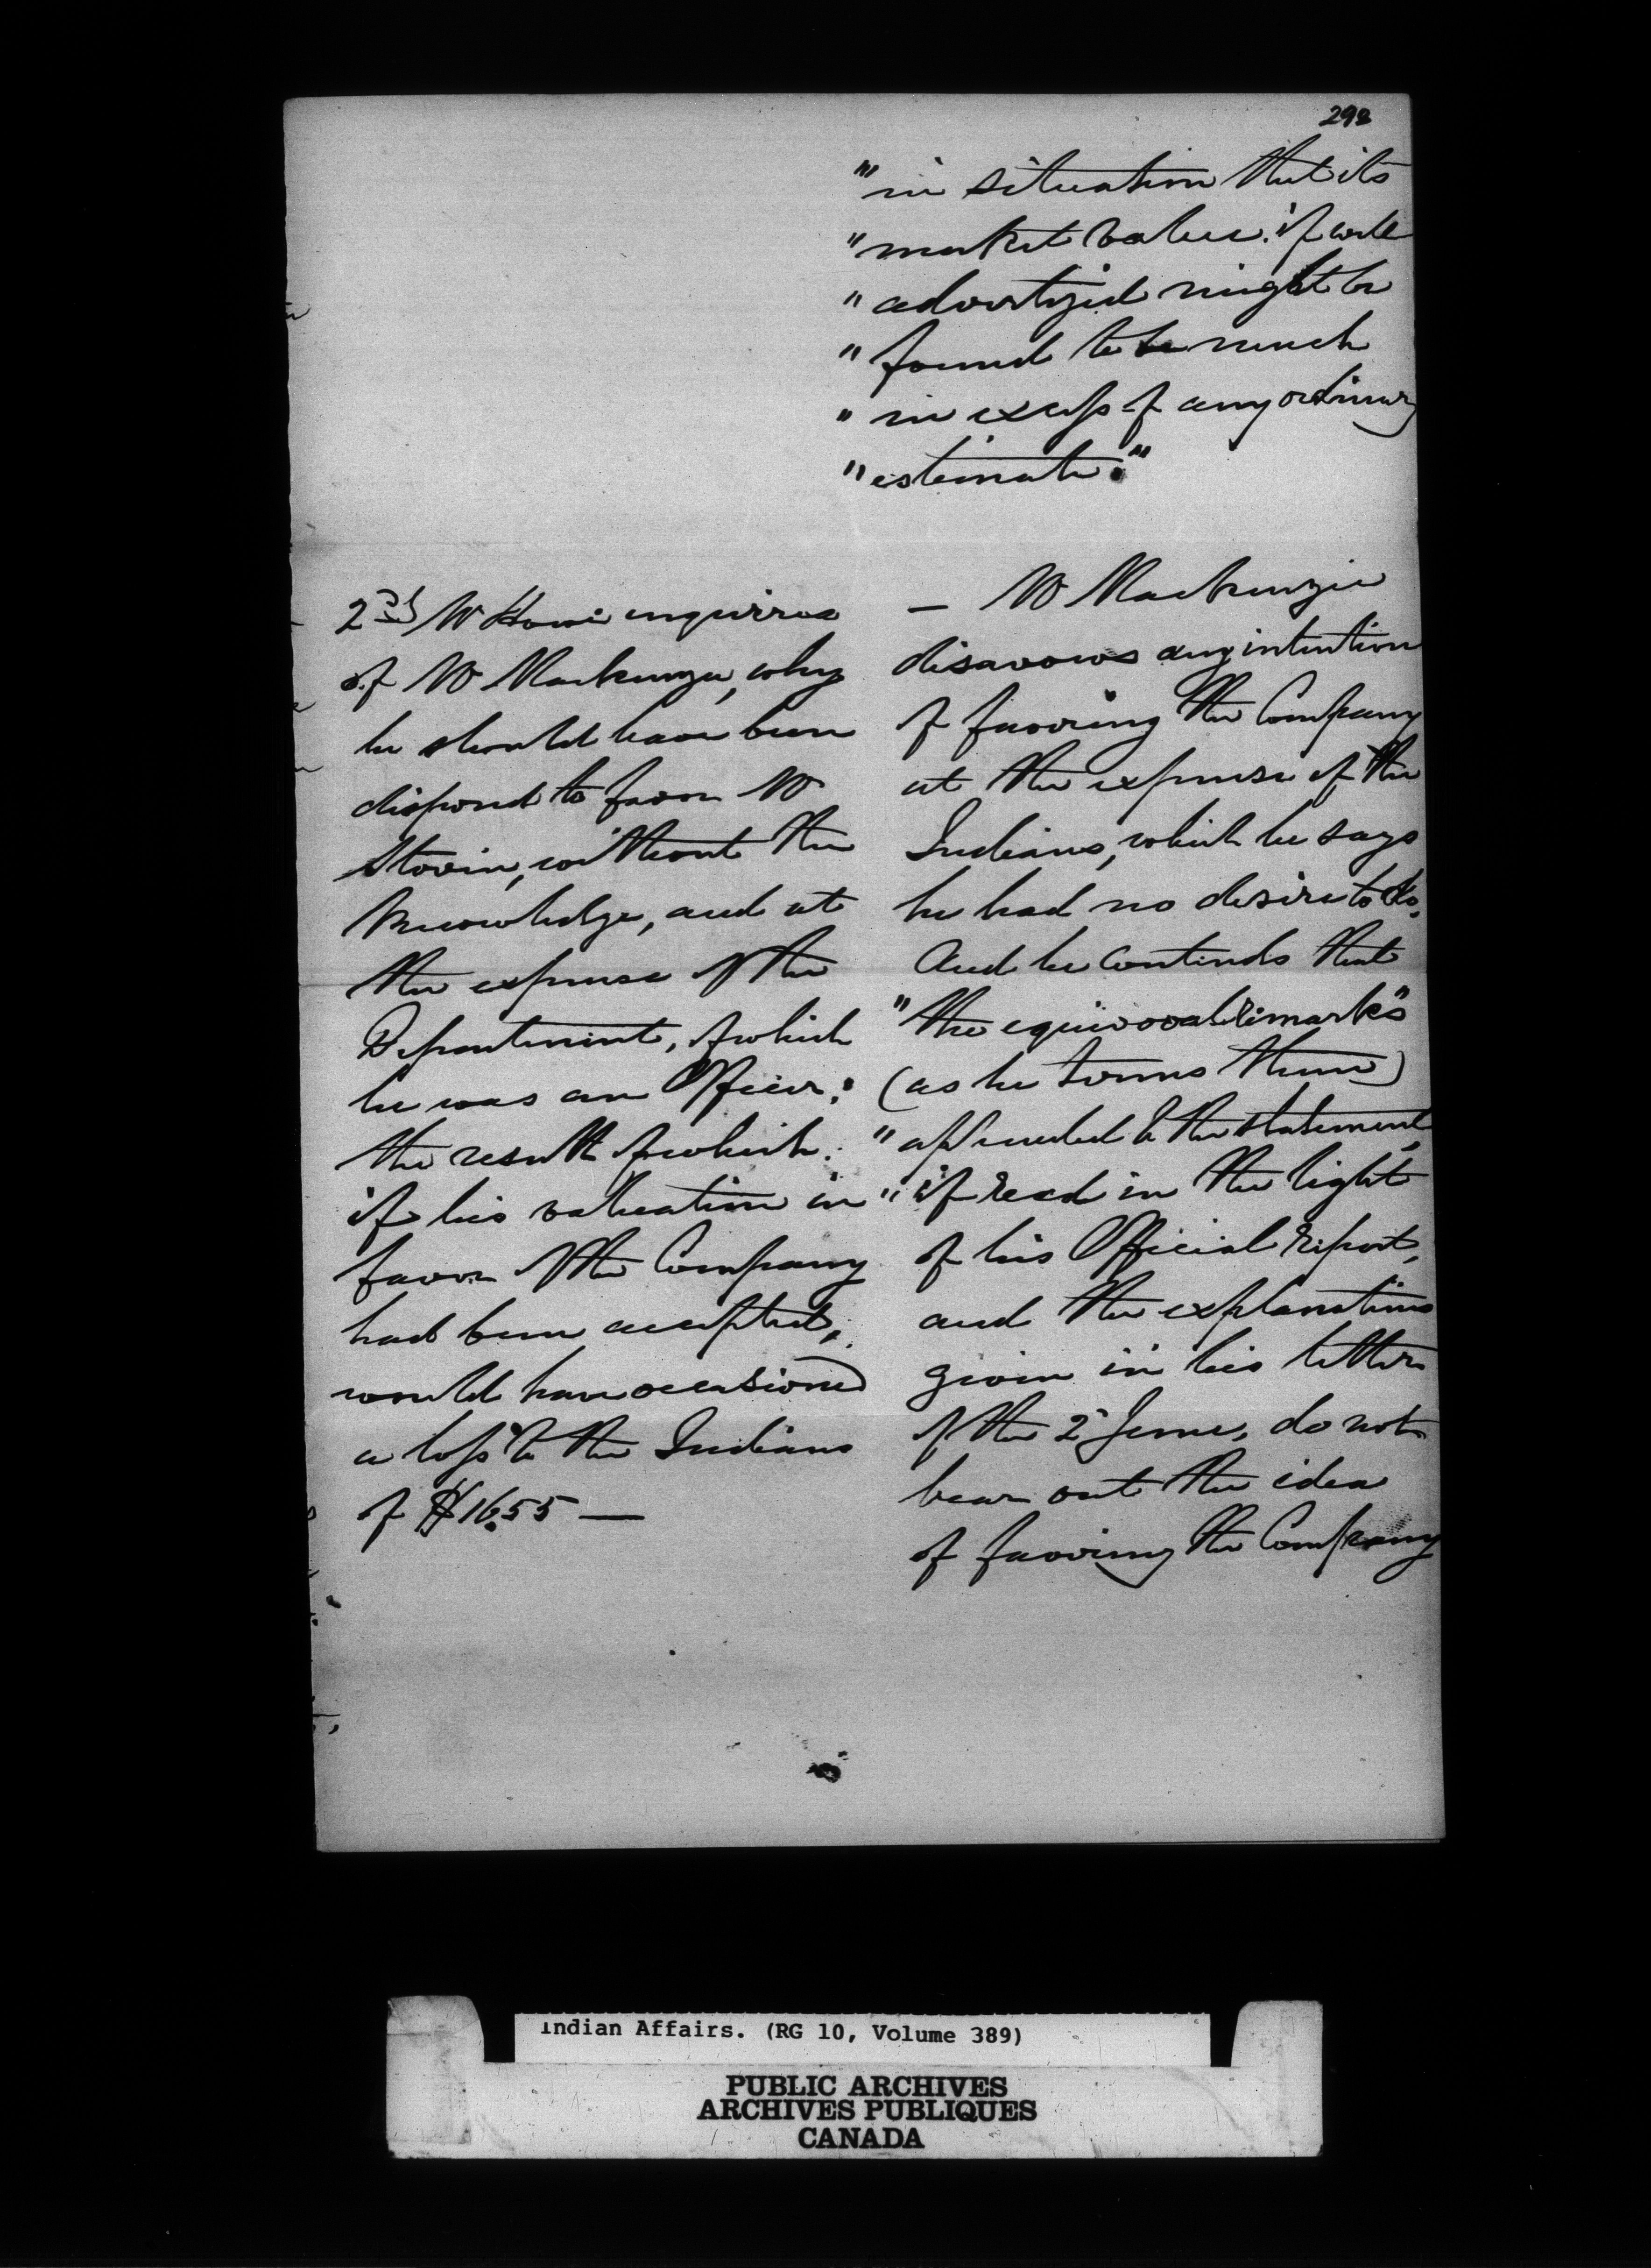 292
"in situation that its
"market value if well
"advertized might be
"found to be much
"in excess of any ordinary
"estimate."
2nd Mr Howe enquires
of Mr Mackenzie, why
he should have been
disposed to favor Mr
Stovin, without the
knowledge, and at
the expense of the
Department, of which
he was an Officer;
the result of which
if his valuation in
favor of the Company
had been accepted,
would have occasioned
a loss to the Indians
of $1655 —
— Mr Mackenzie
disavows any intention
of favoring the Company
at the expense of the
Indians, which he says
he had no desire to do,
And he contends that
"the equivocal remarks"
(as he terms them)
"appended to the statement,
"if read in the light
of his Official Report,
and the explanations
given in his letter
of the 2d June, do not
bear out the idea
of favoring the Company
Indian Affairs. (RG 10, Volume 389)
PUBLIC ARCHIVES
ARCHIVES PUBLIQUES
CANADA